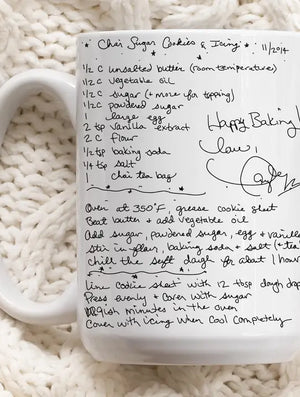 Chai Sugar Cookies & Icing 11/2014
1/2 C unsalted butter (room temperature)
1/2 C vegetable oil
1/2 C sugar (+ more for topping)
1/2 C powdered sugar
1 large egg
2 tsp vanilla extract
2 C flour
1/2 tsp baking soda
1/4 tsp salt
1 chai tea bag
Happy Baking!
Love,
Oven at 350°F, grease cookie sheet
Beat butter & add vegetable oil
Add sugar, powdered sugar, egg & vanilla
stir in flour, baking soda & salt (+ tea
chill the soft dough for about 1 hour
Line cookie sheet with 12 tbsp dough drop
Press evenly & cover with sugar
minutes in the oven
Cover with icing when cool completely